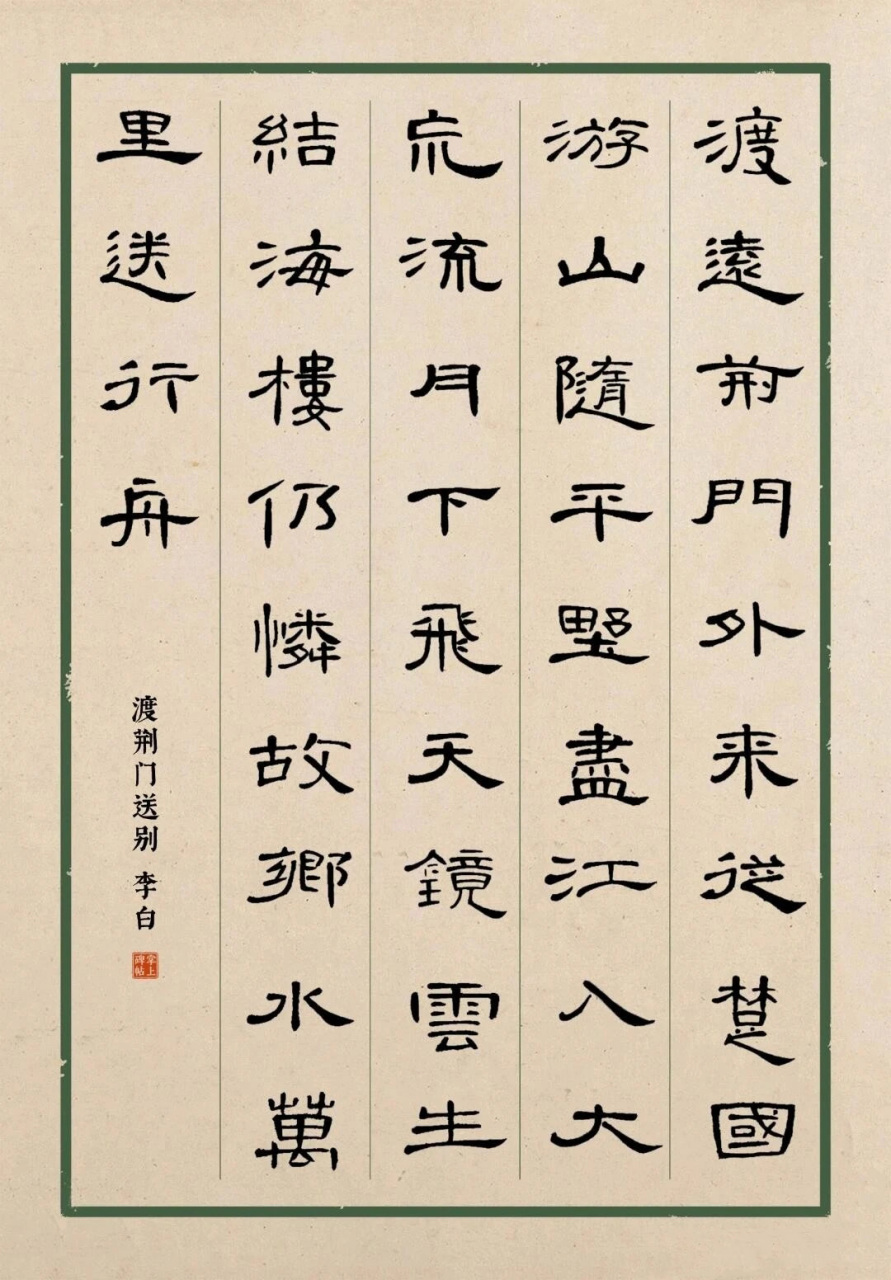 渡遠荊門外来從楚國
游山隨平墅盡江入大
荒流月下飛天鏡雲生
結海樓仍憐故鄉水萬
里送行舟
渡荆门送别 李白
掌上碑帖